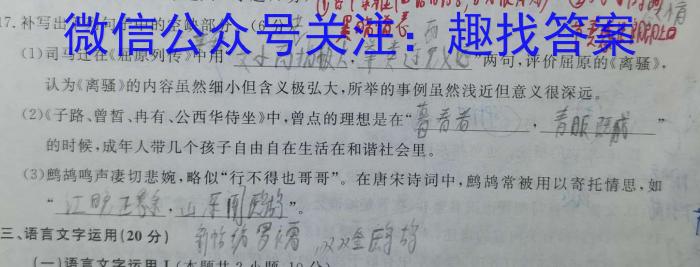 17.补写出
微信公众号关注：趣找答案
(1)司马迁在《屈原列传》中用“ 两句，评价屈原的《离骚》，
认为《离骚》的内容虽然细小但含义极弘大，所举的事例虽然浅近但意义很深远。
(2)《子路、曾皙、冉有、公西华侍坐》中，曾点的理想是在“暮春者，春服既成”
的时候，成年人带几个孩子自由自在生活在和谐社会里。
(3)鹧鸪鸣声凄切悲婉，略似“行不得也哥哥”。在唐宋诗词中，鹧鸪常被用以寄托情思，如
“江晚正愁余，山深闻鹧鸪”。
三、语言文字运用(20分) 新帖绣罗襦，双双金鹧鸪
(一)语言文字运用Ⅰ(本题共3小题，10分)